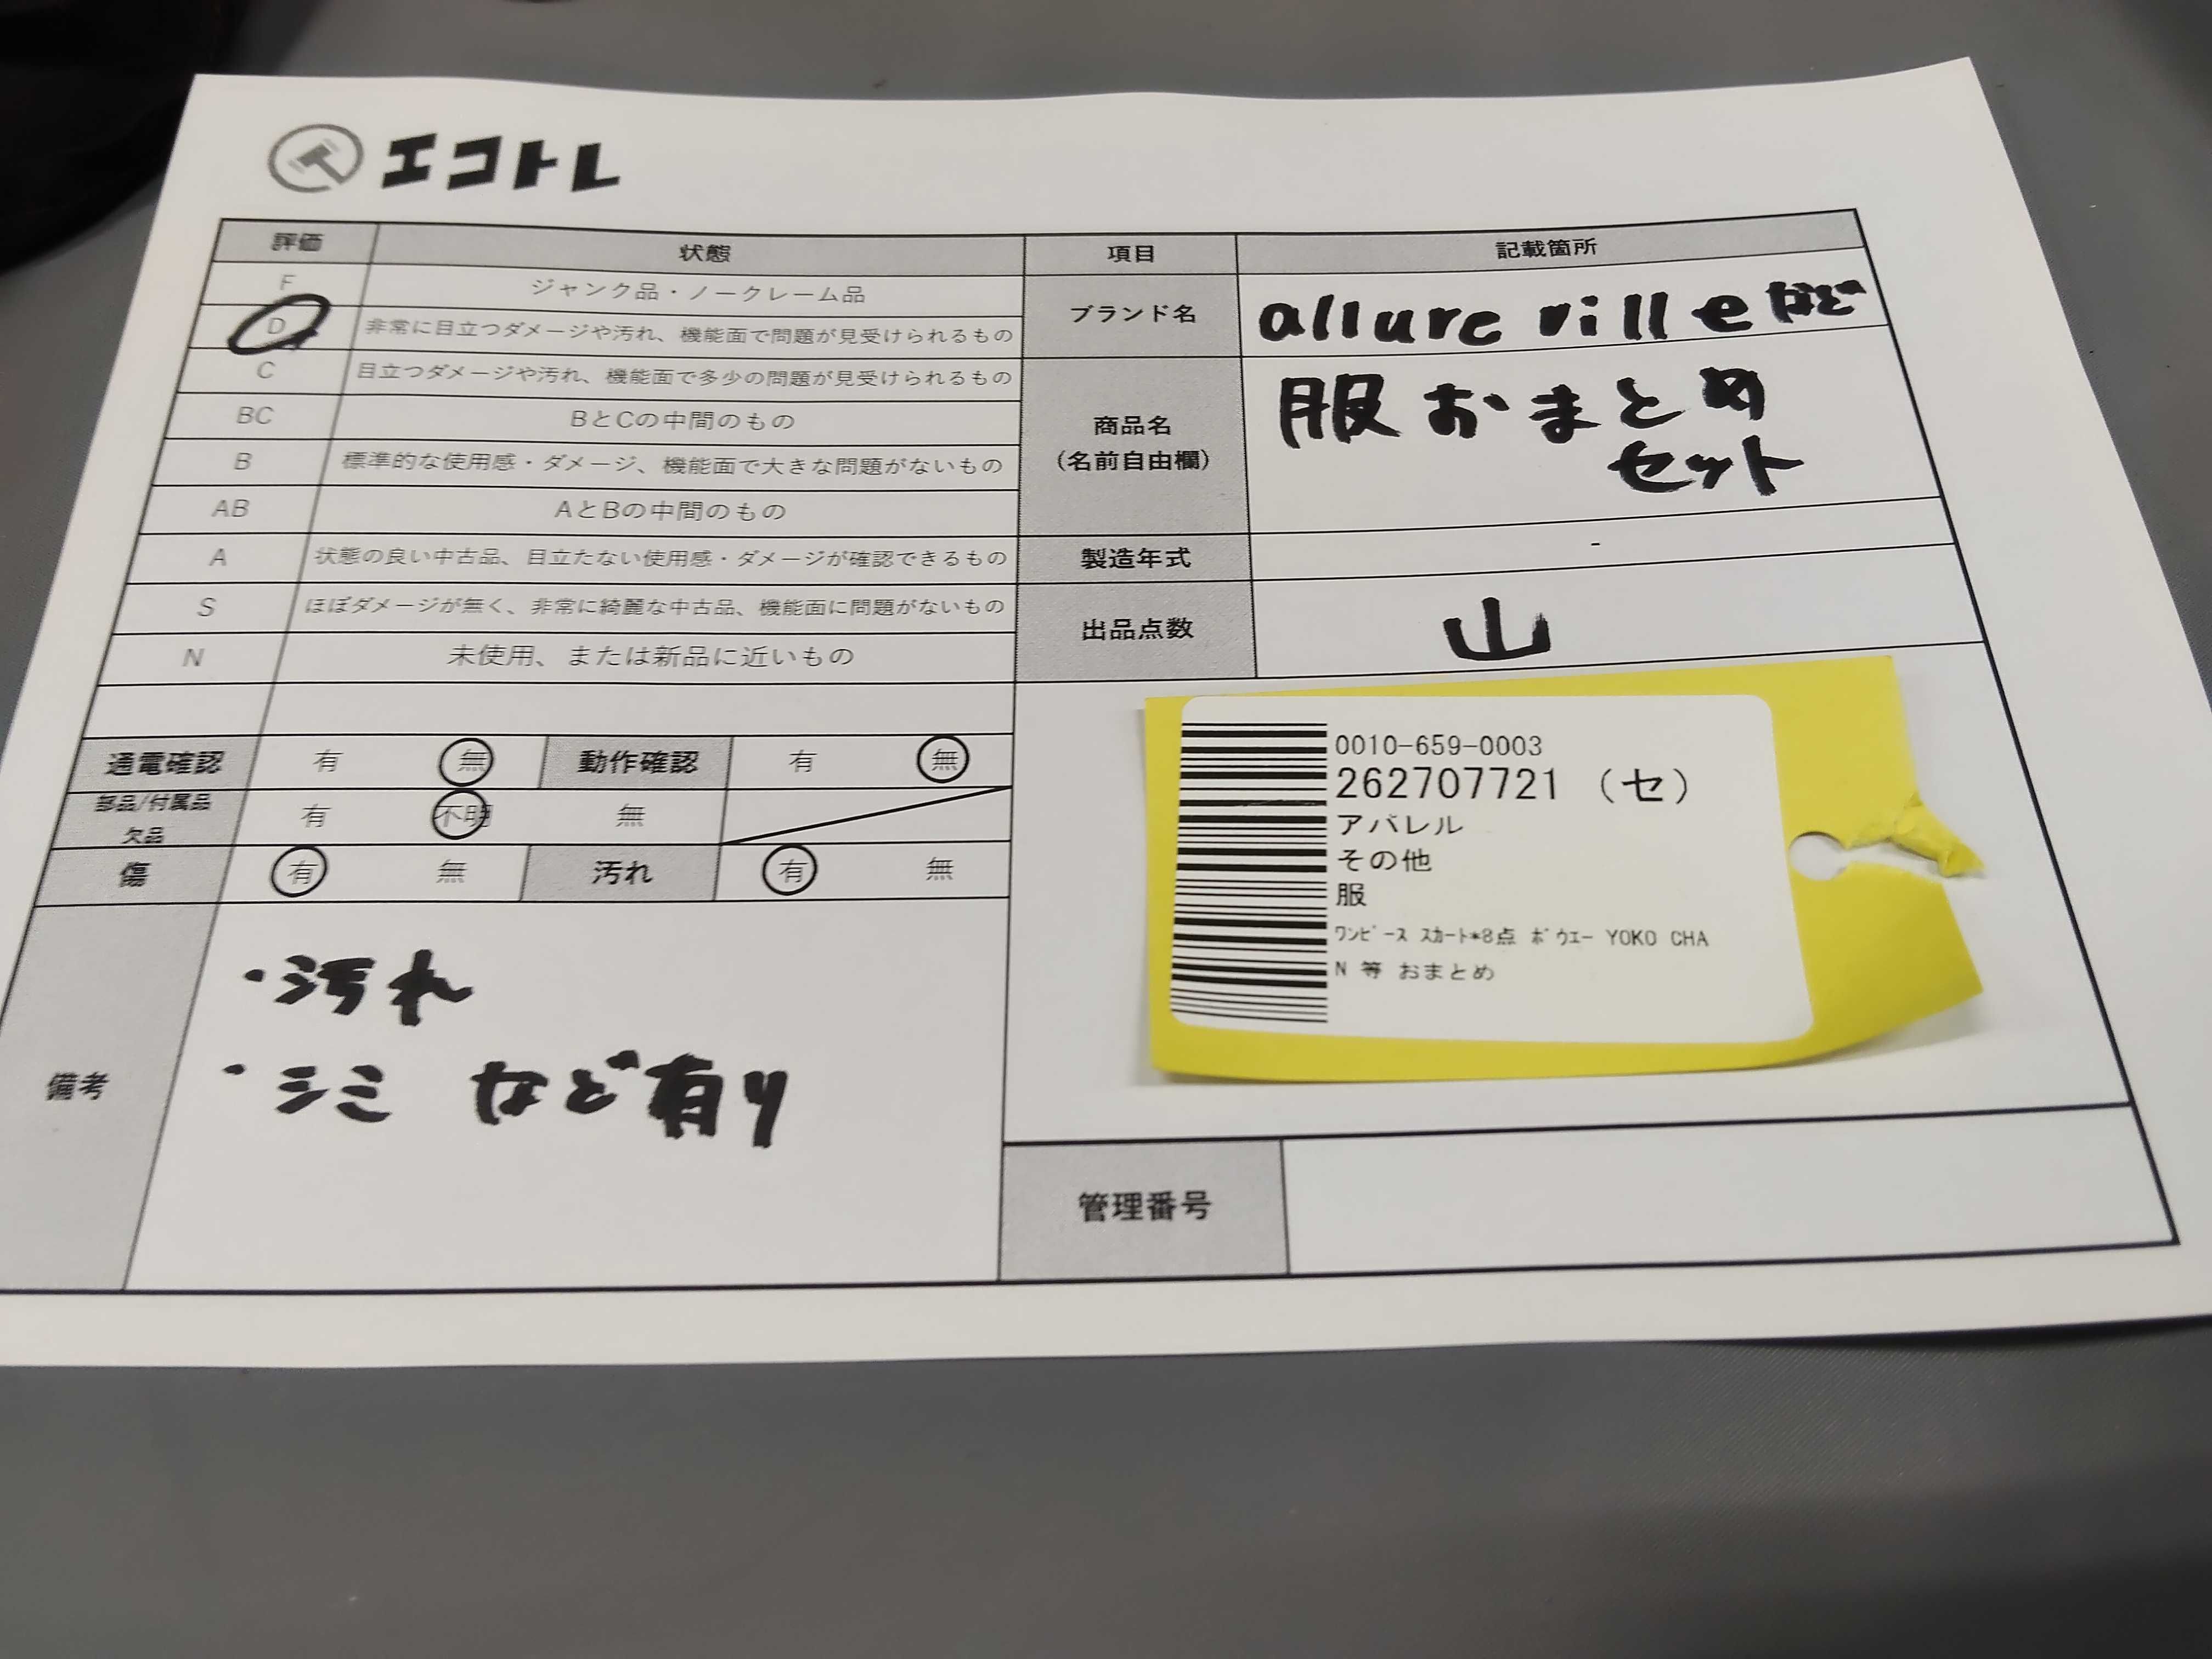 エコトレ
評価 状態 項目 記載箇所
F ジャンク品・ノークレーム品
D 非常に目立つダメージや汚れ、機能面で問題が見受けられるもの
C 目立つダメージや汚れ、機能面で多少の問題が見受けられるもの
BC BとCの中間のもの
B 標準的な使用感・ダメージ、機能面で大きな問題がないもの
AB AとBの中間のもの
A 状態の良い中古品、目立たない使用感・ダメージが確認できるもの
S ほぼダメージが無く、非常に綺麗な中古品、機能面に問題がないもの
N 未使用、または新品に近いもの
ブランド名 allure villeなど
商品名
(名前自由欄)
服おまとめ
セット
製造年式 -
出品点数 山
通電確認 有 無 動作確認 有 無
部品/付属品
欠品
有 不明 無
傷 有 無 汚れ 有 無
備考
・汚れ
・シミ など有り
0010-659-0003
262707721 (セ)
アパレル
その他
服
ワンピース スカート*8点 ボウエー YOKO CHA
N 等 おまとめ
管理番号